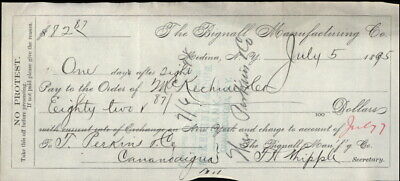 $82 87
The Bignall Manufacturing Co.
Medina, N.Y. July 5 1895
One days after sight
Pay to the Order of
Eighty two & 87/ 100 Dollars
with current rate of Exchange on New York and charge to account of July 7
To T. Perkins & Co
Canandaigua
The Bignall Man'f'g Co.
F. A. Whipple Secretary.
NO PROTEST.
Take this off before presenting.
If not paid please give the reason.